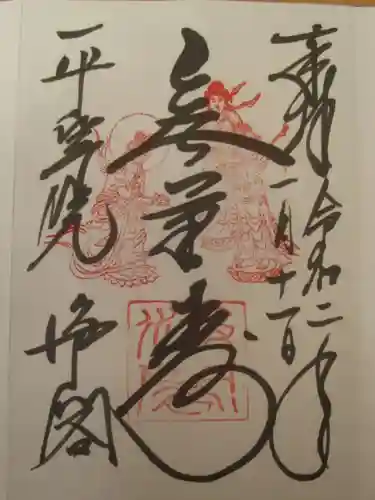 奉拝 令和二年
一月十一日
無量寿
平等院